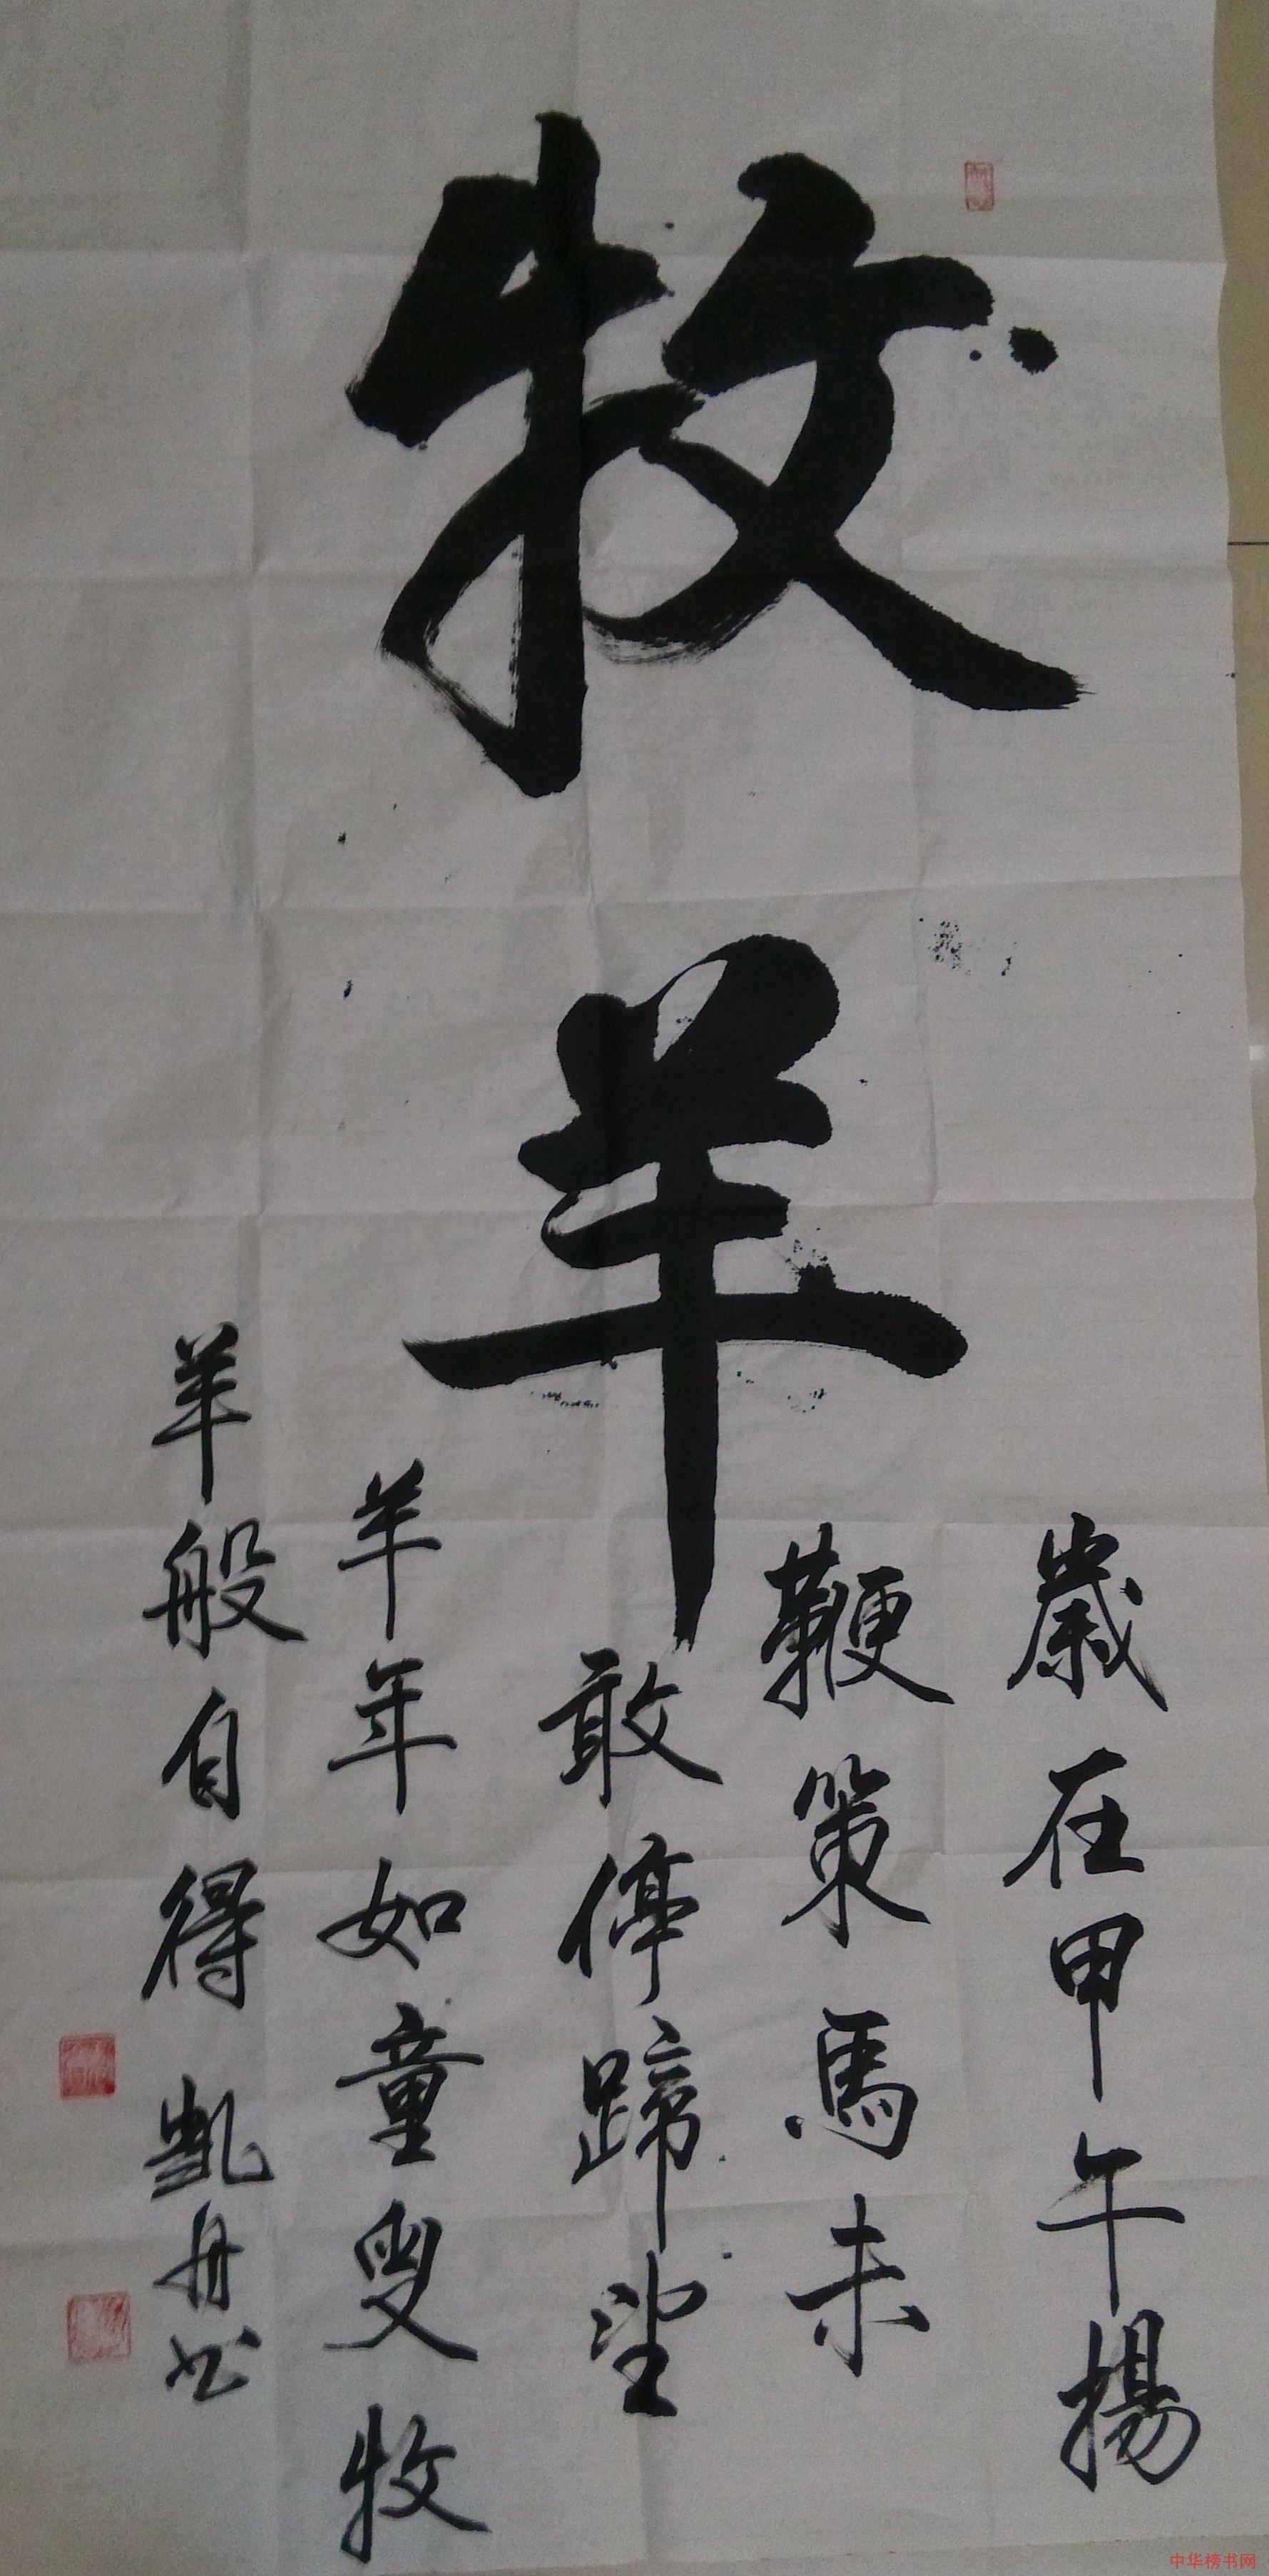 牧羊
歲在甲午揚
鞭策馬未
敢停蹄望
羊年如童叟牧
羊般自得 凱舟书
中华榜书网